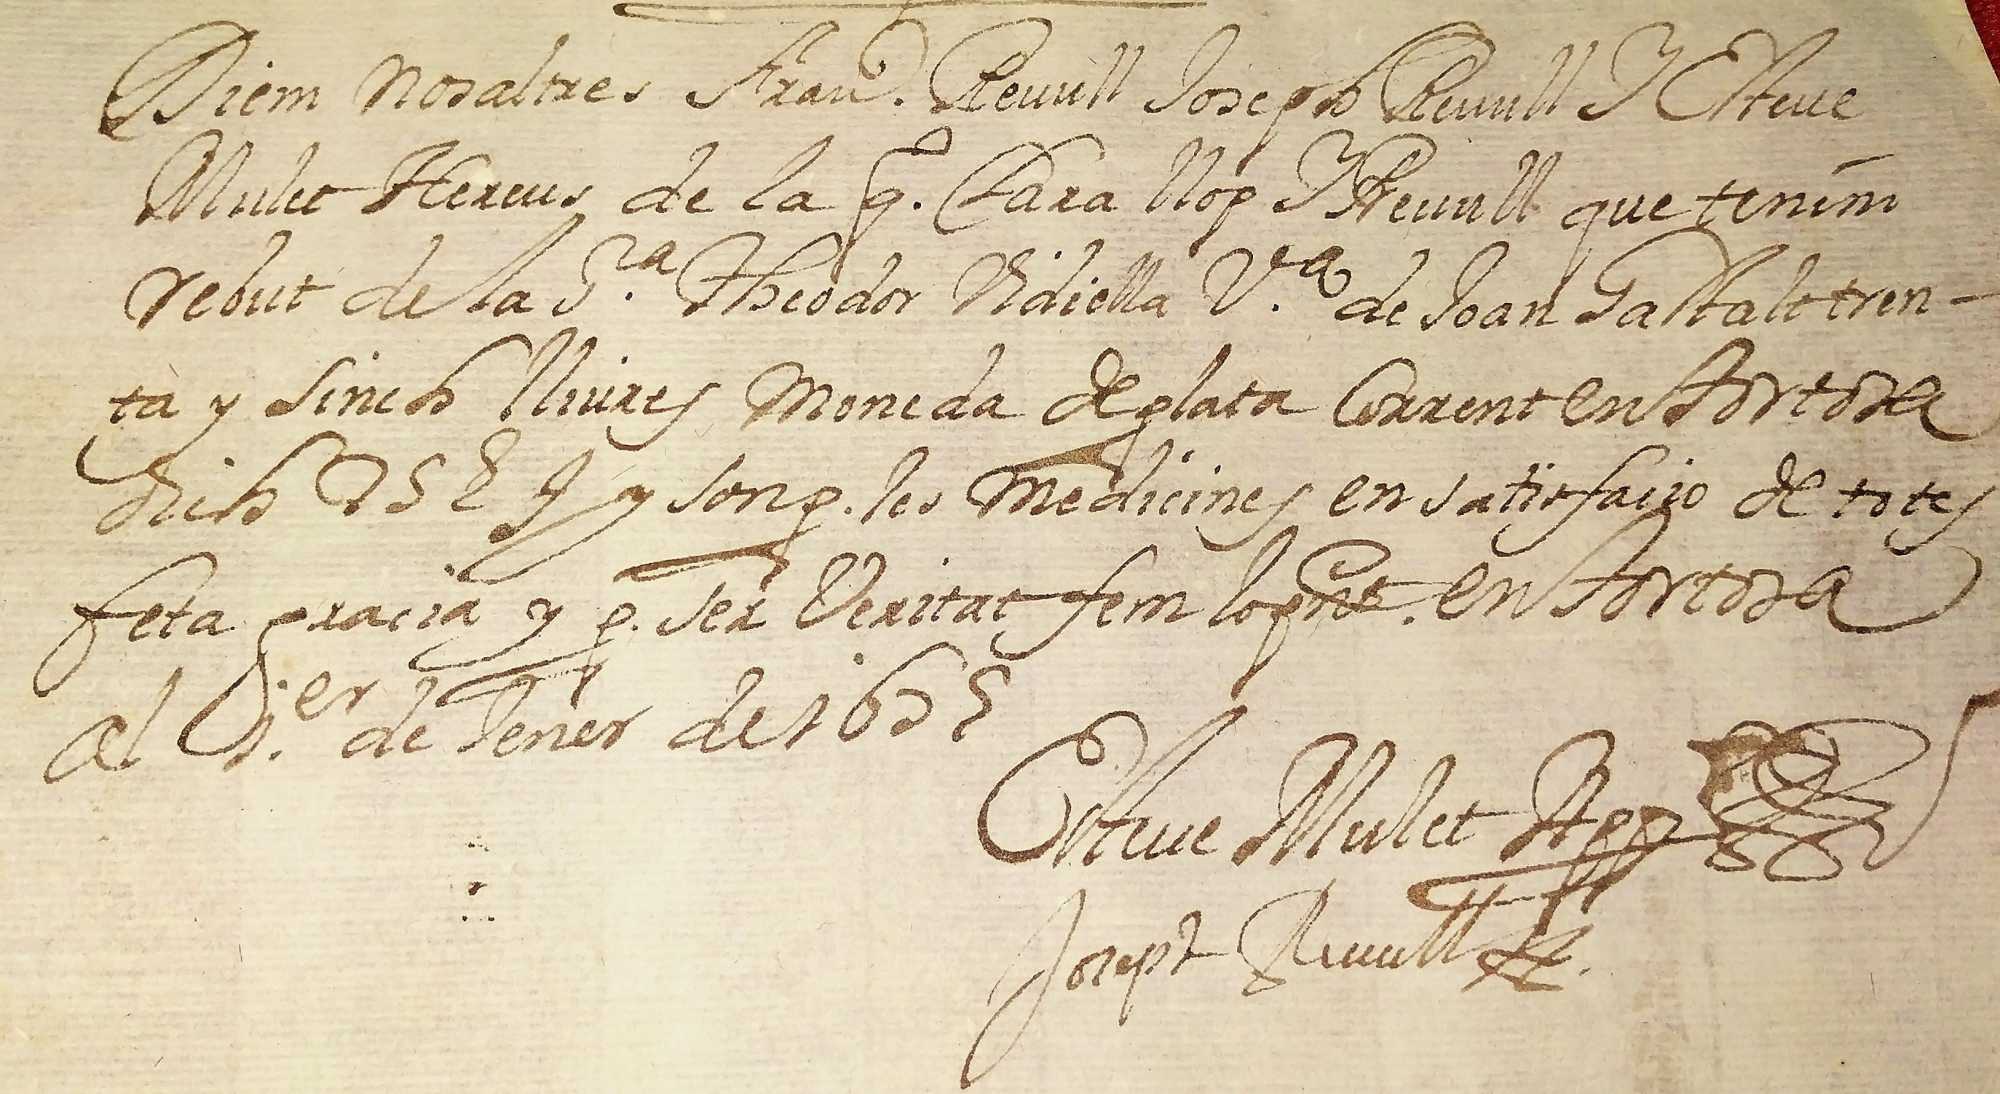 Diem Nosaltres Franc. Revull Joseph Revull Y Esteve
Mulet Hereus de la q. Clara llop Y Revull que tenim
rebut de la S.ra Theodor Vidiella V.a de Joan Gastalt tren-
ta y sinch lliures Moneda de plata Corrent en Tortosa
dich 35 ll y son p. les Medicines en satisfacio de totes
feta gracia y p. ser Veritat fem lo pnt. en Tortosa
al p.er de Jener de
Esteve Mulet App
Joseph Revull